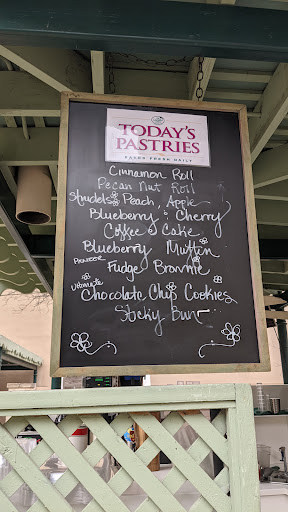 TODAY'S
PASTRIES
BAKED FRESH DAILY
Cinnamon Roll
Pecan Nut Roll
Strudels Peach, Apple
Blueberry Cherry
Coffee Cake
Blueberry Muffin
Pioneer
Fudge Brownie
Ultimate
Chocolate Chip Cookies
Sticky Bun